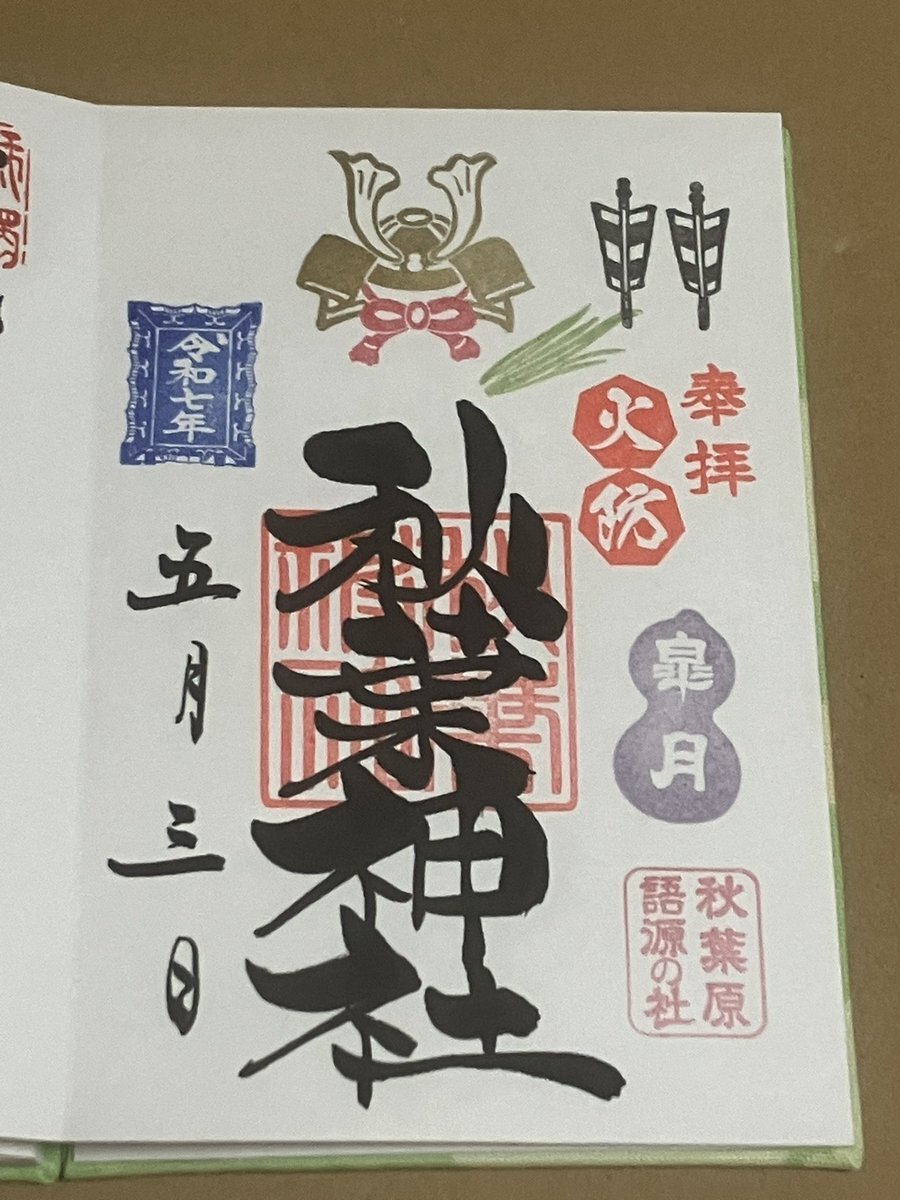 奉拝
火防
皐月
秋葉原
語源の社
秋葉神社
令和七年
五月三日